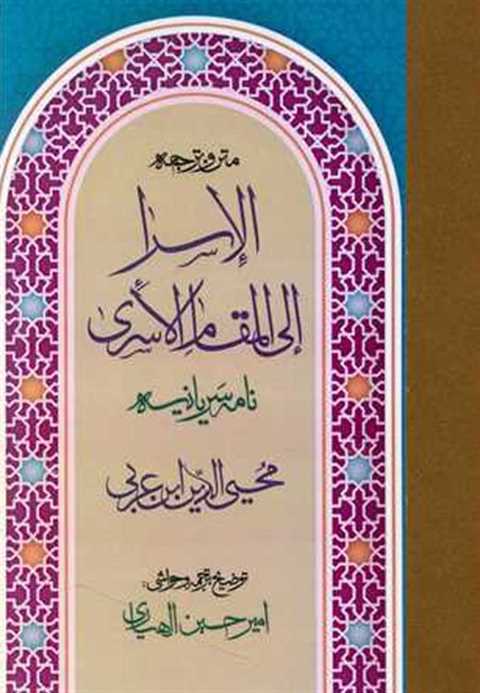 متن و ترجمه
الإسرا
إلى المقام الأسرى
نامه سریانیه
محیی الدین ابن عربی
توضیح، ترجمه و حواشی:
امیرحسین الهیاری